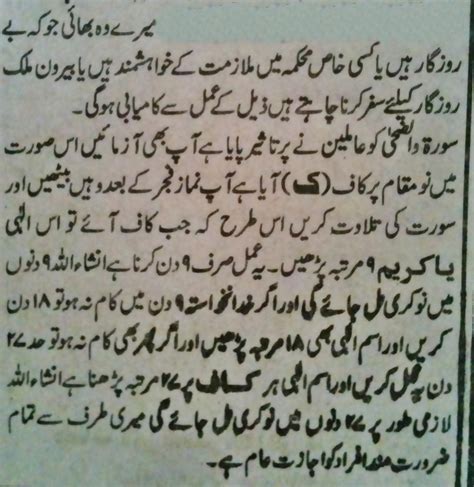 میرے وہ بھائی جو کہ بے
روزگار ہیں یا کسی خاص محکمہ میں ملازمت کے خواہشمند ہیں یا بیرون ملک
روزگار کیلئے سفر کرنا چاہتے ہیں ذیل کے عمل سے کامیابی ہوگی۔
سورۃ والضحیٰ کو عاملین نے پر تاثیر پایا ہے آپ بھی آزمائیں اس صورت
میں نو مقام پر کاف (ک) آیا ہے آپ نماز فجر کے بعد وہیں بیٹھیں اور
سورت کی تلاوت کریں اس طرح کہ جب کاف آئے تو اس الٰہی
یا کریم ۹ مرتبہ پڑھیں۔ یہ عمل صرف ۹ دن کرنا ہے انشاء اللہ ۹ دنوں
میں نوکری مل جائے گی اور اگر خدانخواستہ ۹ دن میں کام نہ ہو تو ۱۸ دن
کریں اور اسم الٰہی بھی ۱۸ مرتبہ پڑھیں اور اگر پھر بھی کام نہ ہو تو حد ۲۷
دن یہ عمل کریں اور اسم الٰہی ہر کاف پر ۲۷ مرتبہ پڑھنا ہے انشاء اللہ
لازمی طور پر ۲۷ دنوں میں نوکری مل جائے گی میری طرف سے تمام
ضرورت مند افراد کو اجازت عام ہے۔